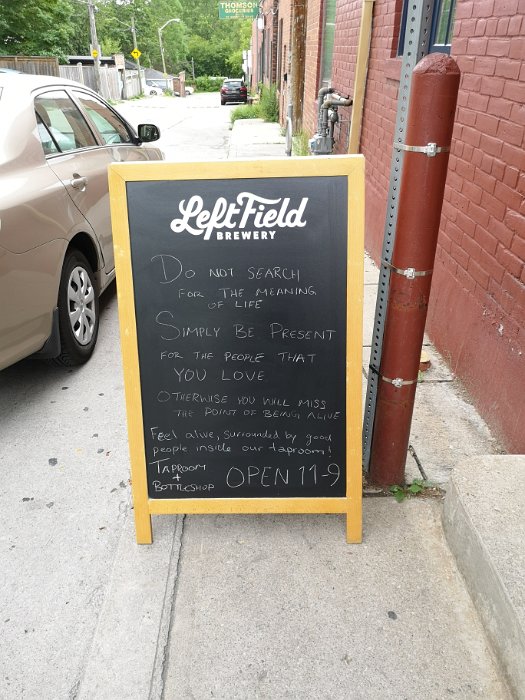 THOMSON
GROCERIES
Left Field
BREWERY
DO NOT SEARCH
FOR THE MEANING
OF LIFE
SIMPLY BE PRESENT
FOR THE PEOPLE THAT
YOU LOVE
OTHERWISE YOU WILL MISS
THE POINT OF BEING ALIVE
Feel alive, surrounded by good
people inside our taproom!
TAPROOM
+
BOTTLESHOP OPEN 11-9